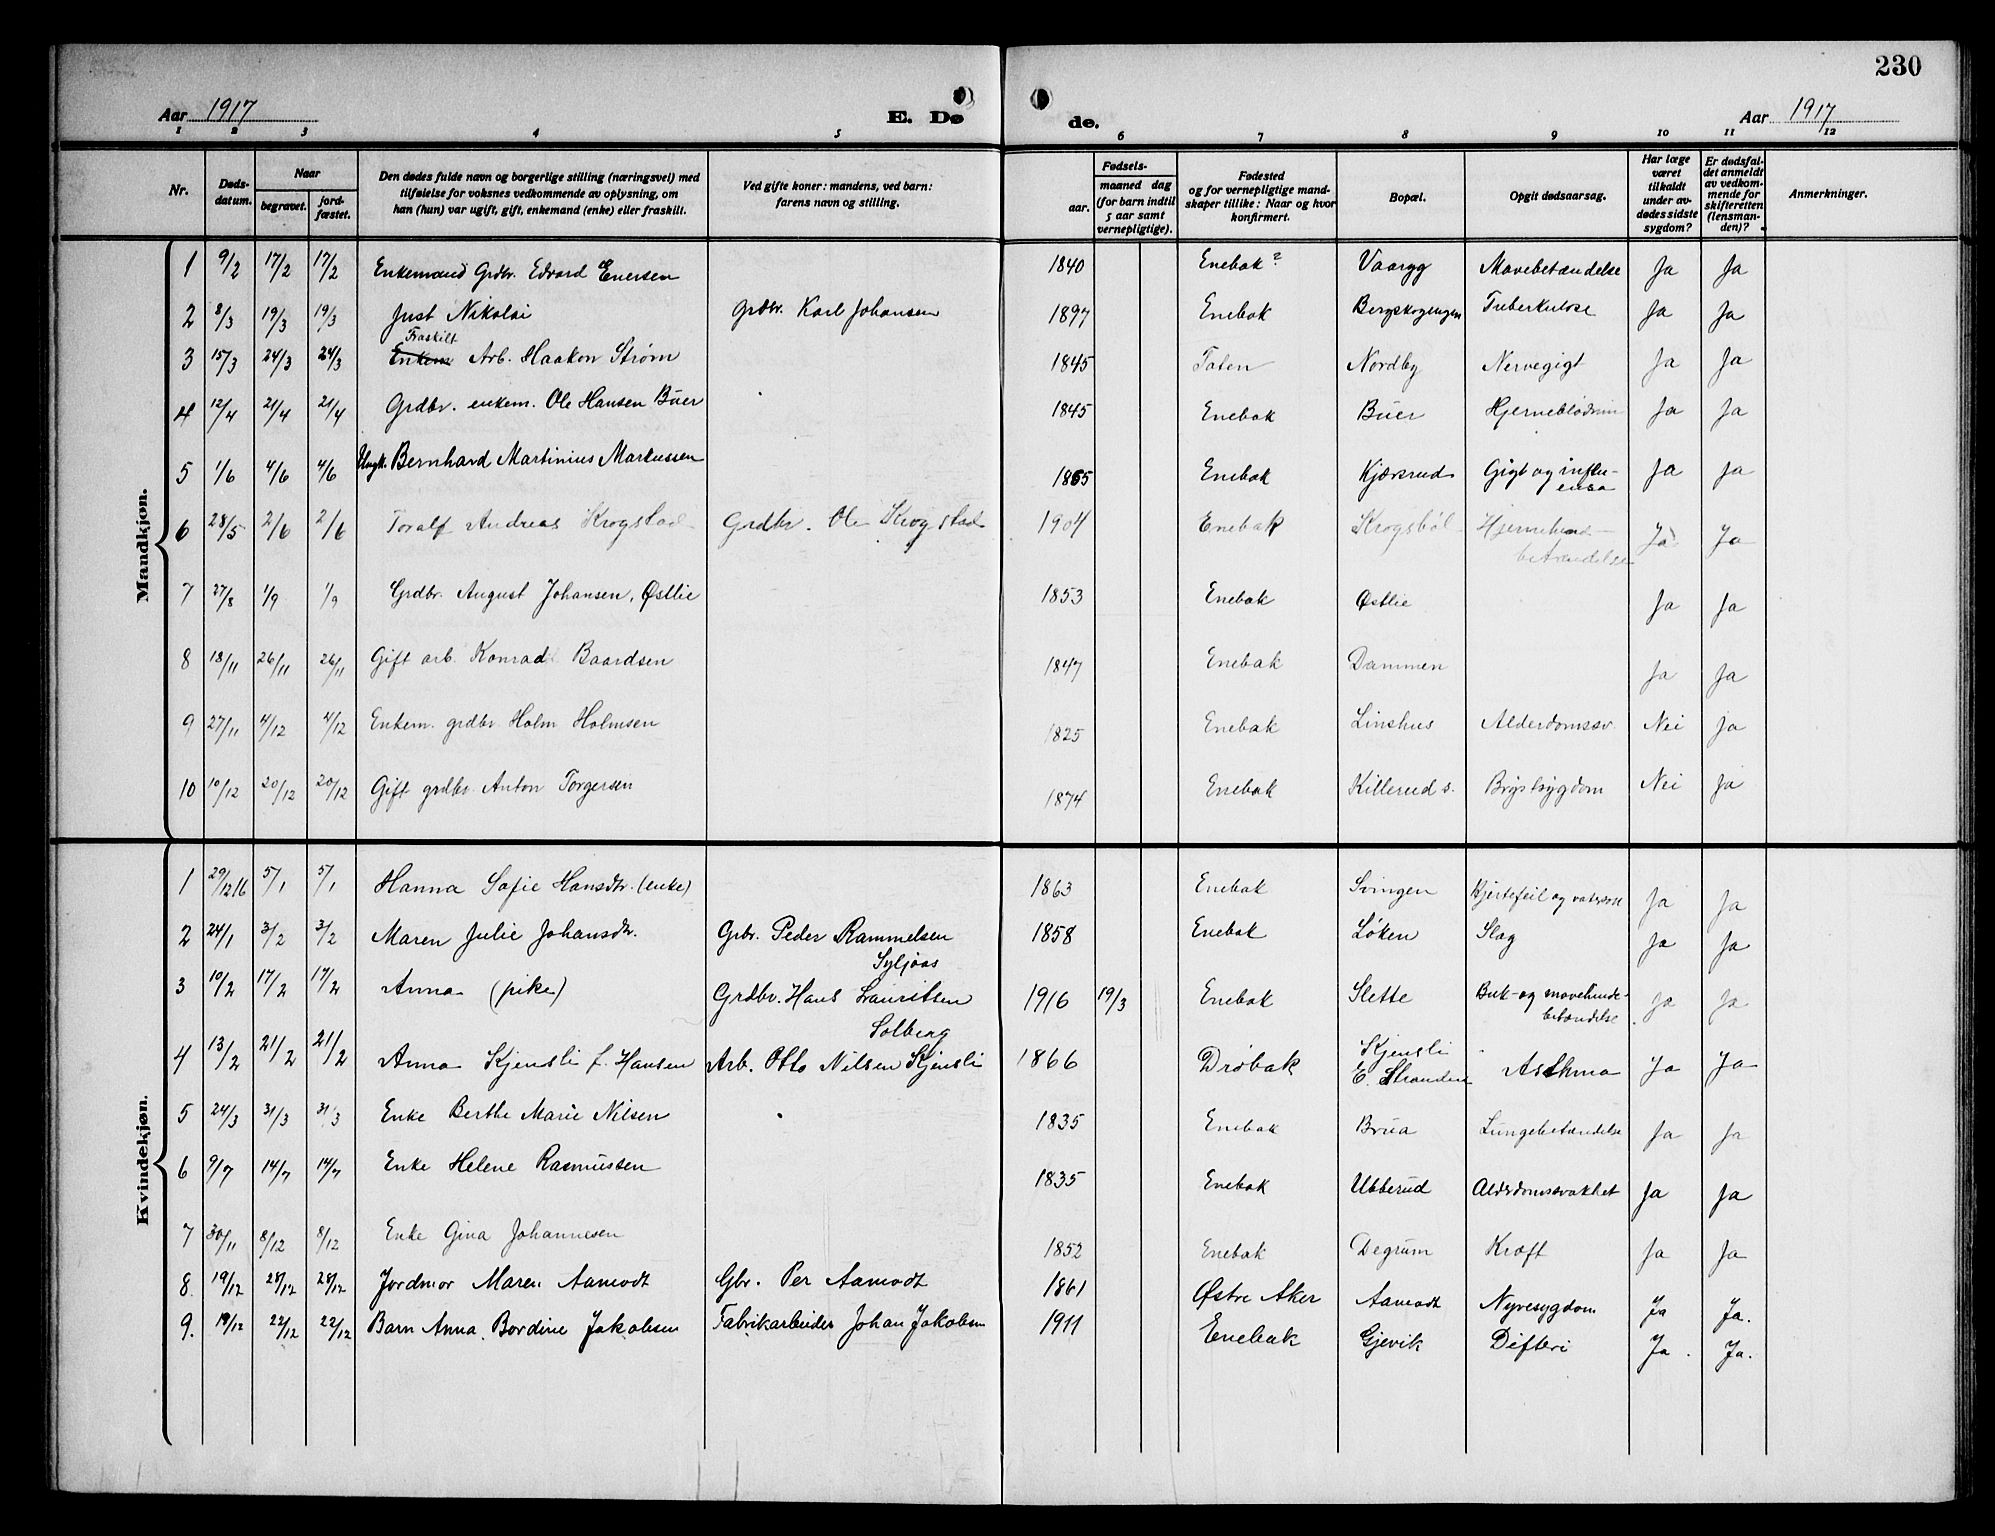 230
Aar 1917 E. Døde. Aar 1917
1 2 3 4 5 6 7 8 9 10 11 12
Nr. Døds-datum. Naar begravet. jord-fæstet. Den dødes fulde navn og borgerlige stilling (næringsvei) med tilføielse for voksnes vedkommende av oplysning, om han (hun) var ugift, gift, enkemand (enke) eller fraskilt. Ved gifte koner: mandens, ved barn: farens navn og stilling. Fødsels- aar. maaned dag (for barn indtil 5 aar samt vernepligtige). Fødested og for vernepligtige mand-skaper tillike: Naar og hvor konfirmert. Bopæl. Opgit dødsaarsag. Har læge været tilkaldt under av-dødes sidste sygdom? Er dødsfal-det anmeldt av vedkom-mende for skifteretten (lensman-den)? Anmerkninger.
Mandkjøn.
1 9/2 17/2 17/2 Enkemand Grdbr. Edvard Enersen 1840 Enebak? Vaaryg Mavebetændelse Ja Ja
2 8/3 19/3 19/3 Just Nikolai Grdbr. Karl Johansen 1897 Enebak Bergskogengen Tuberkulose Ja Ja
Fraskilt
3 15/3 24/3 24/3 Enkem Arb. Haakon Strøm 1845 Toten Nordby Nervegigt Ja Ja
4 12/4 21/4 21/4 Grdbr. enkem. Ole Hansen Buer 1845 Enebak Buer Hjerneblødnin Ja Ja
5 1/6 4/6 4/6 Ungk. Bernhard Martinius Markussen 1865 Enebak Kjærsrud Gigt og influ-
ensa Ja Ja
6 28/5 2/6 2/6 Toralf Andreas Krogstad Grdbr. Ole Krogstad 1904 Enebak Krogsbøl Hjernehind-
betændelse Ja Ja
7 27/8 1/9 1/9 Grdbr. August Johansen, Østlie 1853 Enebak Østlie Ja Ja
8 18/11 26/11 26/11 Gift arb. Konrad Baardsen 1847 Enebak Dammen Ja Ja
9 27/11 4/12 4/12 Enkem. grdbr. Holm Holmsen 1825 Enebak Linshus Alderdomssv. Nei Ja
10 10/12 20/12 20/12 Gift grdbr. Anton Torgersen 1874 Enebak Killerud s. Brystsygdom Nei Ja
Kvindekjøn.
1 29/12 16 5/1 5/1 Hanna Sofie Hansdtr. (enke) 1863 Enebak Svingen Hjertefeil og vatersot Ja Ja
2 24/1 3/2 3/2 Maren Julie Johansdtr. Grbr. Peder Rammelsen
Syljaas 1858 Enebak Løken Slag Ja Ja
3 10/2 17/2 17/2 Anna (pike) Grdbr. Hans Lauritsen
Solberg 1916 19/3 Enebak Slette Buk- og mavehinde-
betændelse Ja Ja
4 13/2 21/2 21/2 Anna Kjensli f. Hansen Arb. Otto Nilsen Kjensli 1866 Drøbak Kjensli
E. Stranden Asthma Ja Ja
5 24/3 31/3 31/3 Enke Berthe Marie Nilsen 1835 Enebak Brua Lungebetændelse Ja Ja
6 9/7 14/7 14/7 Enke Helene Rasmussen 1835 Enebak Ubberud Alderdomssvakhet Ja Ja
7 30/11 8/12 8/12 Enke Gina Johannesen 1852 Enebak Degrum Kræft Ja Ja
8. 19/12 28/12 28/12 Jordmor Maren Aamodt Gbr. Per Aamodt 1861 Østre Aker Aamodt Nyresygdom Ja Ja.
9. 19/12 22/12 22/12 Barn Anna Bordine Jakobsen Fabrikarbeider Johan Jakobsen 1911 Enebak Gjevik Difteri Ja. Ja.